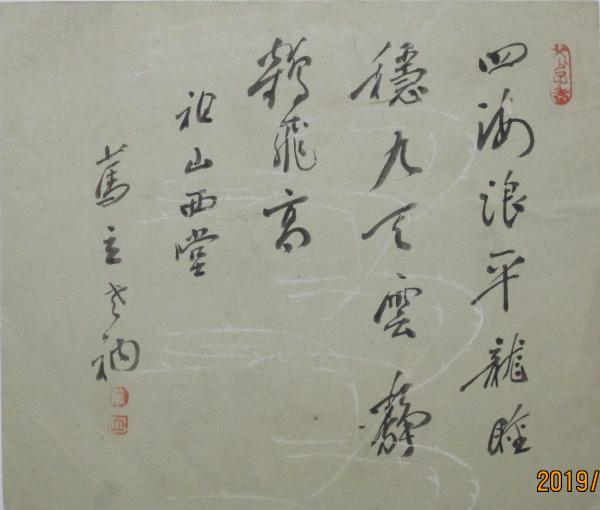 四海浪平龍睡
穩九天雲静
鶴飛高
祖山西堂
萬立老衲
2019/